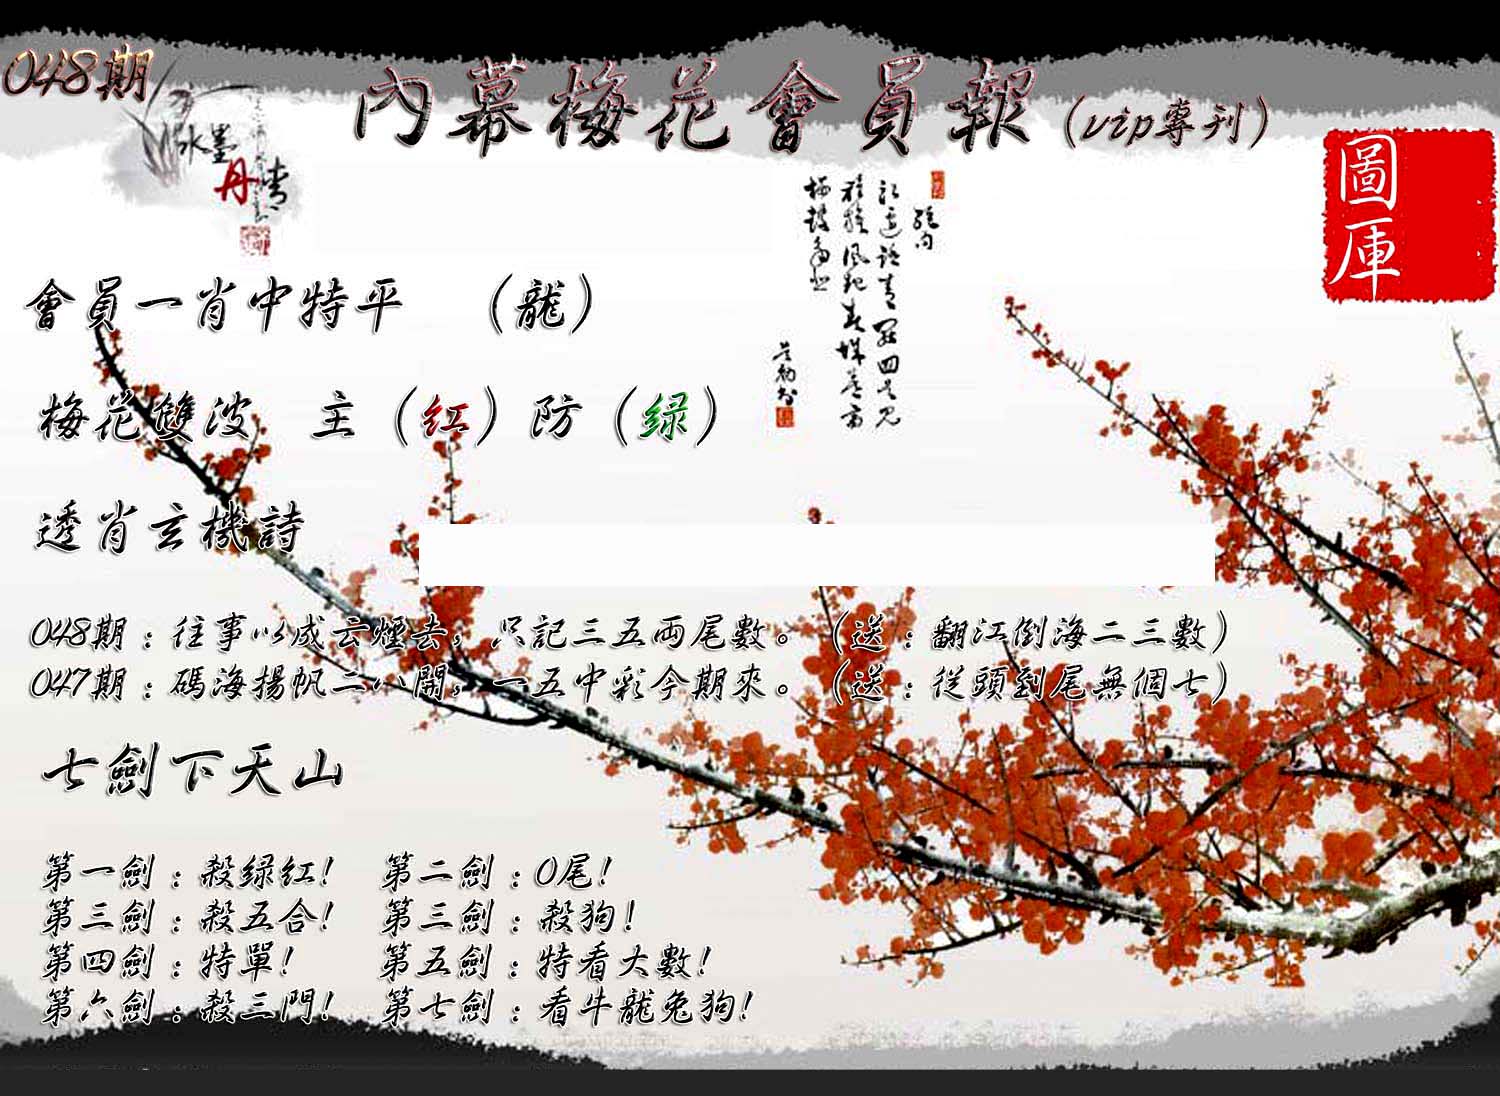 048期
內幕梅花會員報（vip專刊）
水墨
丹情
圖庫
會員一肖中特平 （龍）
梅花雙波 主（红）防（绿）
透肖玄機詩
048期：往事以成云煙去，只記三五両尾數。（送：翻江倒海二三數）
047期：碼海揚帆二八開，一五中彩今期來。（送：從頭到尾無個七）
七劍下天山
第一劍：殺绿红！ 第二劍：0尾！
第三劍：殺五合！ 第三劍：殺狗！
第四劍：特單！ 第五劍：特看大數！
第六劍：殺三門！ 第七劍：看牛龍兔狗！